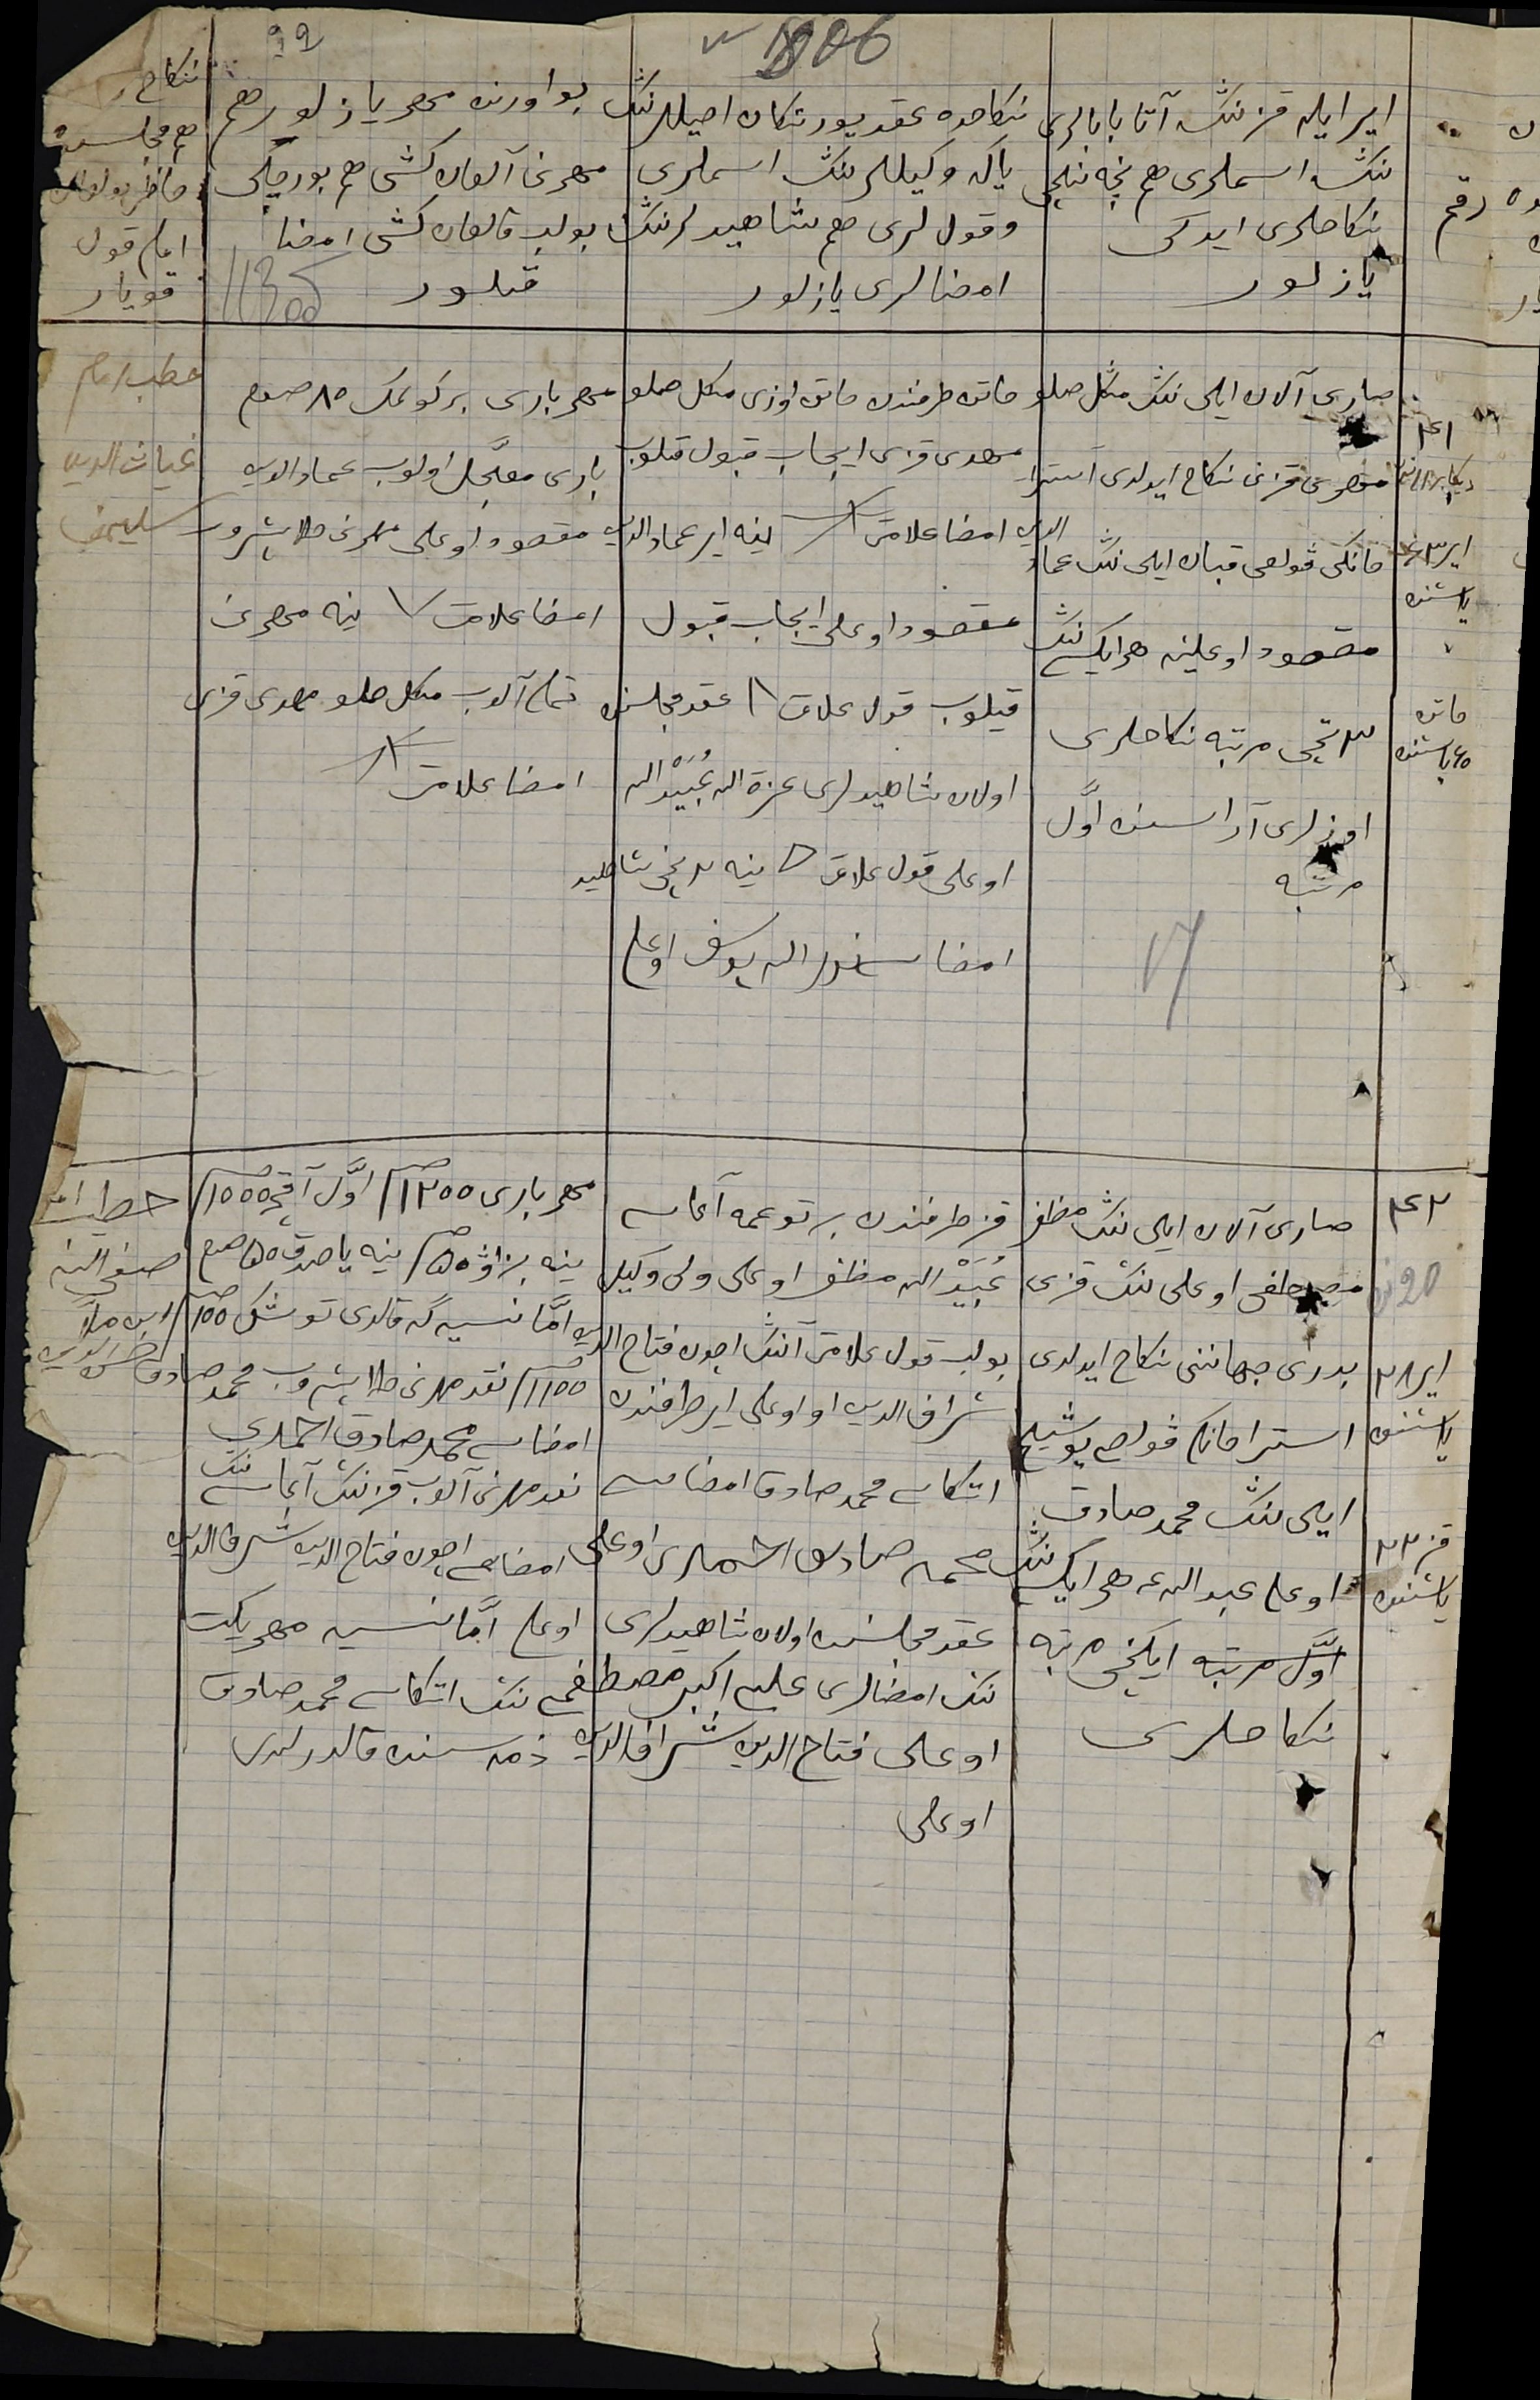 1306
99
رقم
ایر ایله قزننڭ آتا بابالری
ننڭ اسملری هم نچه نچی
نکاحلری ایدکی
یازلور
نکاحده عقد یورتکان اصیللرننڭ
یاکه وکیللرننڭ اسملری
وقول لری هم شاهیدلرننڭ
امضالری یازلور
بو اورنده مهر یازلور هم
مهرنی آلغان کشی هم بورچلی
بولب قالغان کشی امضا
قیلور
نکاح
هم مجلسده
حاضر بولغان
امام قول
قویار
۴۱
ایر ۶۳
یاشنده
خاتون
۶۵ یاشنده
صاری آلان ایلی ننڭ مثکل صلو
مهدی قزی نکاح ایدلدی آسترا
خانکی قولصی قبان ایلی ننڭ عماد الدین
مقصود اوغلینه هر ایکیسی ننڭ
۳ نچی مرتبه نکاحلری
اوزلری آراسنده اوّل
مرتبه
خاتون طرفندن خاتون اوزی مثکل صلو
مهدی قزی ایجاب قبول قیلوب
امضا علامتی ینه ایر عماد الدین
مقصود اوغلی ایجاب قبول
قیلوب قول علامتی عقد مجلسنده
اولان شاهیدلری عزة الله عُبَیْد الله
اوغلی قول علامتی ینه ۲ نچی شاهید
امضا سی نورالله یوسف اوغلی
مهر باری بر کولمک ۸۵ صوم
باری معجّل اولوب عماد الدین
مقصود اوغلی مهرنی طابشروب
امضا علامتی ینه مهرنی
تمام آلوب مثکل صلو مهدی قزی
امضا علامتی
خطیب امام
غیاث الدین
۴۲
20
ایر ۲۸
یاشنده
قز ۲۲
یاشنده
صاری آلان ایلی ننڭ مظفر
مصطفی اوغلی ننڭ قزی
بدری جهاننی نکاح ایدلدی
استراخانکی قولصی
ایلی ننڭ محمد صادق
اوغلی عبد الله غه هر ایکیسی ننڭ
اوّل مرتبه ایکنچی مرتبه
نکاحلری
قز طرفندن بر توغمه آغاسی
عُبَیْد الله مظفر اوغلی ولی وکیل
بولب قول علامتی آننڭ اچون فتاح الدین
شراف الدین اوغلی ایر طرفندن
اتکاسی محمد صادق امضاسی
محمد صادق احمدی اوغلی
عقد مجلسنده اولان شاهیدلری
ننڭ امضالری علی اکبر مصطفی
اوغلی فتاح الدین شراف الدین
اوغلی
مهر باری ۱۲۰۰ اوّل آقچه ۱۰۰۰
ینه ۵۰ ینه یاصدق ۵۰ صوم
امّا نسیه گه قالدی توشک ۱۰۰
۱۱۰۰ نقد مهرنی طابشروب محمد صادق
امضاسی محمد صادق احمدی
نقد مهرنی آلوب قزننڭ آغاسی ننڭ
امضاسی اچون فتاح الدین شرف الدین
اوغلی امّا نسیه مهر یکت
ننڭ اتکاسی محمد صادق
ذمه سنده قالدرلدی
خطیب امام
صفی الله
ابن ملا